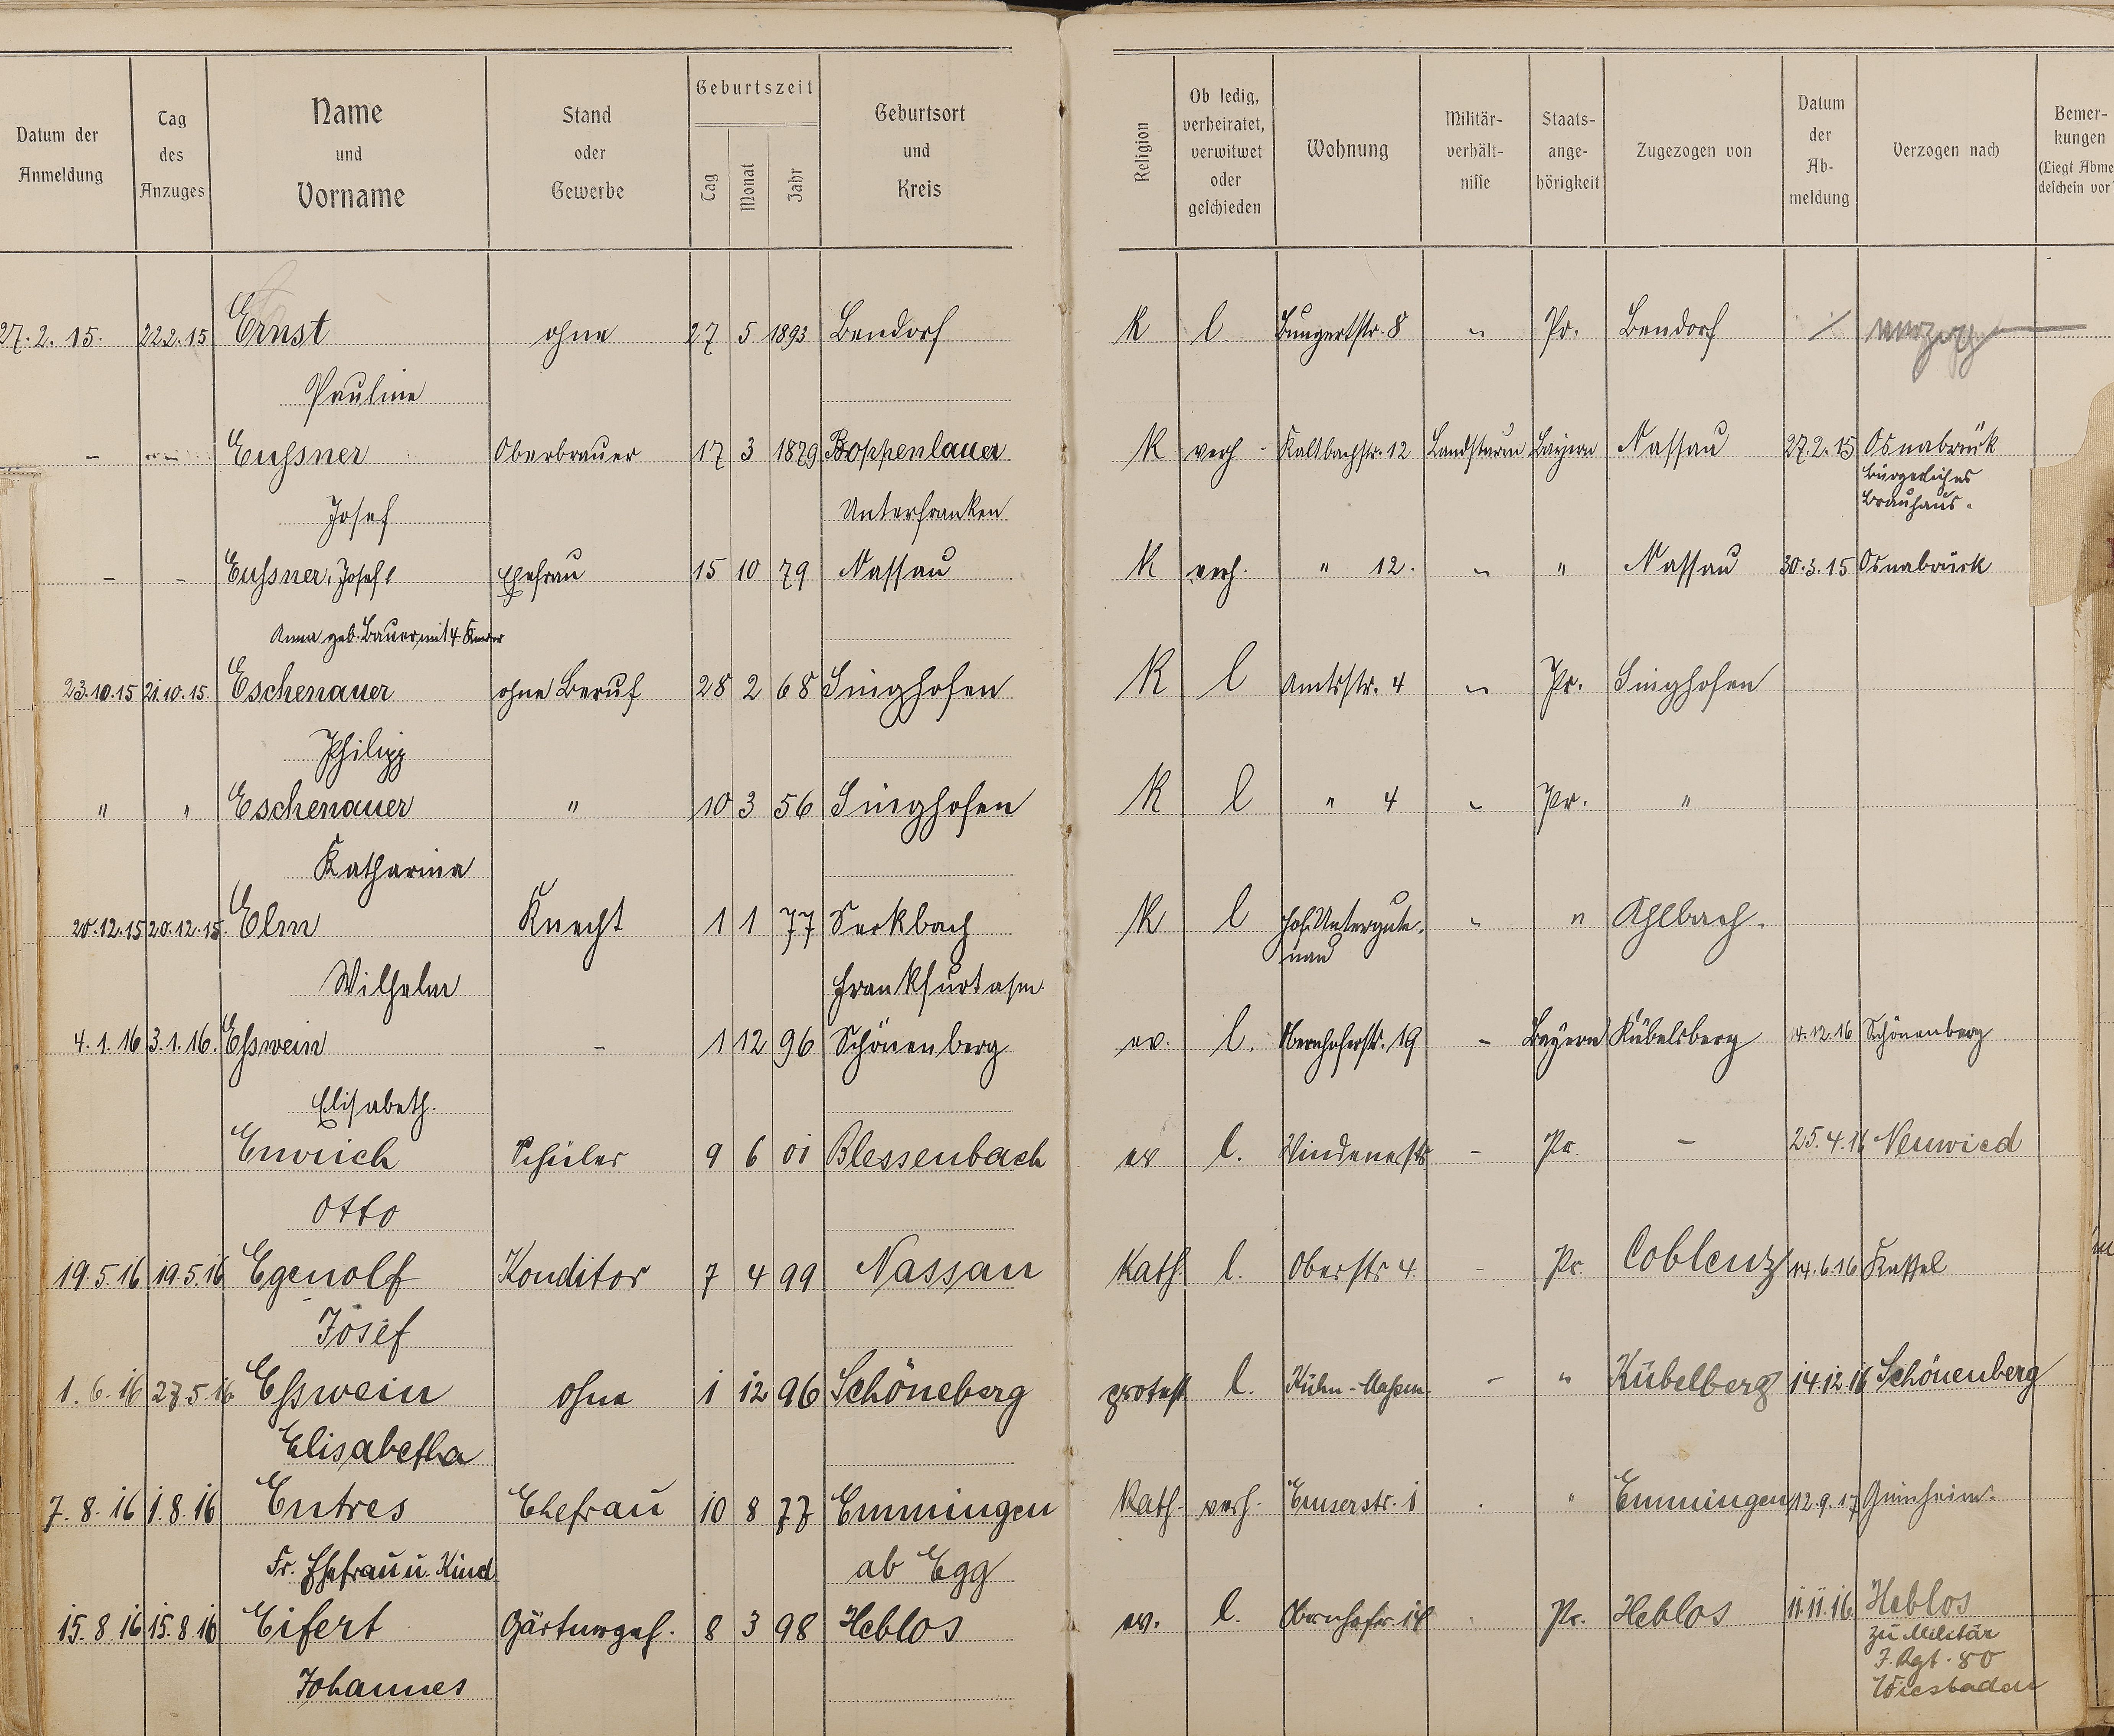 Datum der Anmeldung
Tag des Anzuges
Name und Vorname
Stand oder Gewerbe
Geburtszeit
Tag Monat Jahr
Geburtsort und Kreis
Religion
Ob ledig, verheiratet, verwitwet oder geschieden
Wohnung
Militär-verhält-nisse
Staats-ange-hörigkeit
Zugezogen von
Datum der Ab-meldung
Verzogen nach
Bemer-kungen
(Liegt Abme
deschein vor
27. 2. 15. 22.2.15 Ernst ohne 27 5 1893 Bendorf k l. Bungertstr. 8 " Pr. Bendorf /
Pauline
- " - Eußner Oberbrauer 17 3 1879 Boppenlauer K verh - Kaltbachstr. 12 Landsturm Bayern Nassau 27.2.15 Osnabrück
Bürgerliches
Brauhaus.
Josef Unterfranken
- - Eußner, Josef Ehefrau 15 10 79 Nassau K verh. " 12. " " Nassau 30.3.15 Osnabrück
Anna geb. Bauer, mit 4 Kinder
23.10.15 21.10.15. Eschenauer ohne Beruf 28 2 68 Singhofen K l Amtsstr. 4 " Pr. Singhofen
Philipp
" " Eschenauer " 10 3 56 Singhofen K l " 4 " Pr. "
Katharina
20.12.15 20.12.15. Elm Knecht 1 1 77 Seckbach K l Hof Untergute- " " Ahlbach.
nau
Wilhelm Frankfurt a/m.
4. 1. 16 3. 1. 16. Eßwein - 1 12 96 Schönenberg ev. l. Obernhoferstr. 19 - Bayern Kübelsberg 14.12.16 Schönenberg
Elisabeth.
Emrich Schüler 9 6 01 Blessenbach ev l. Windenerstr - Pr. - 25.4.16 Neuwied
Otto
19.5.16 19.5.16 Egenolf Konditor 7 4 99 Nassau Kath l. Oberstr 4 - Pr. Coblenz 14.6.16 Kassel
Josef
1. 6. 16 27.5.16 Eßwein ohne 1 12 96 Schöneberg protest l. - " Kübelberg 14.12.16 Schönenberg
Elisabetha
7. 8. 16 1. 8. 16 Entres Ehefrau 10 8 77 Emmingen Kath- verh. Emserstr. 1 . " Emmingen 12.9.17
Fr. Ehefrau u. Kind ab Egg
15.8.16 15.8.16 Eifert Gärtnergeh. 8 3 98 Heblos ev. l. Obernhofstr. 14 . Pr. Heblos 11.11.16 Heblos
zu Militär
J. Rgt. 80
Wiesbaden
Johannes